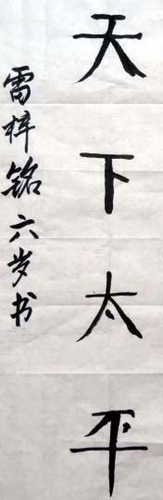 天下太平
雷梓铭六岁书